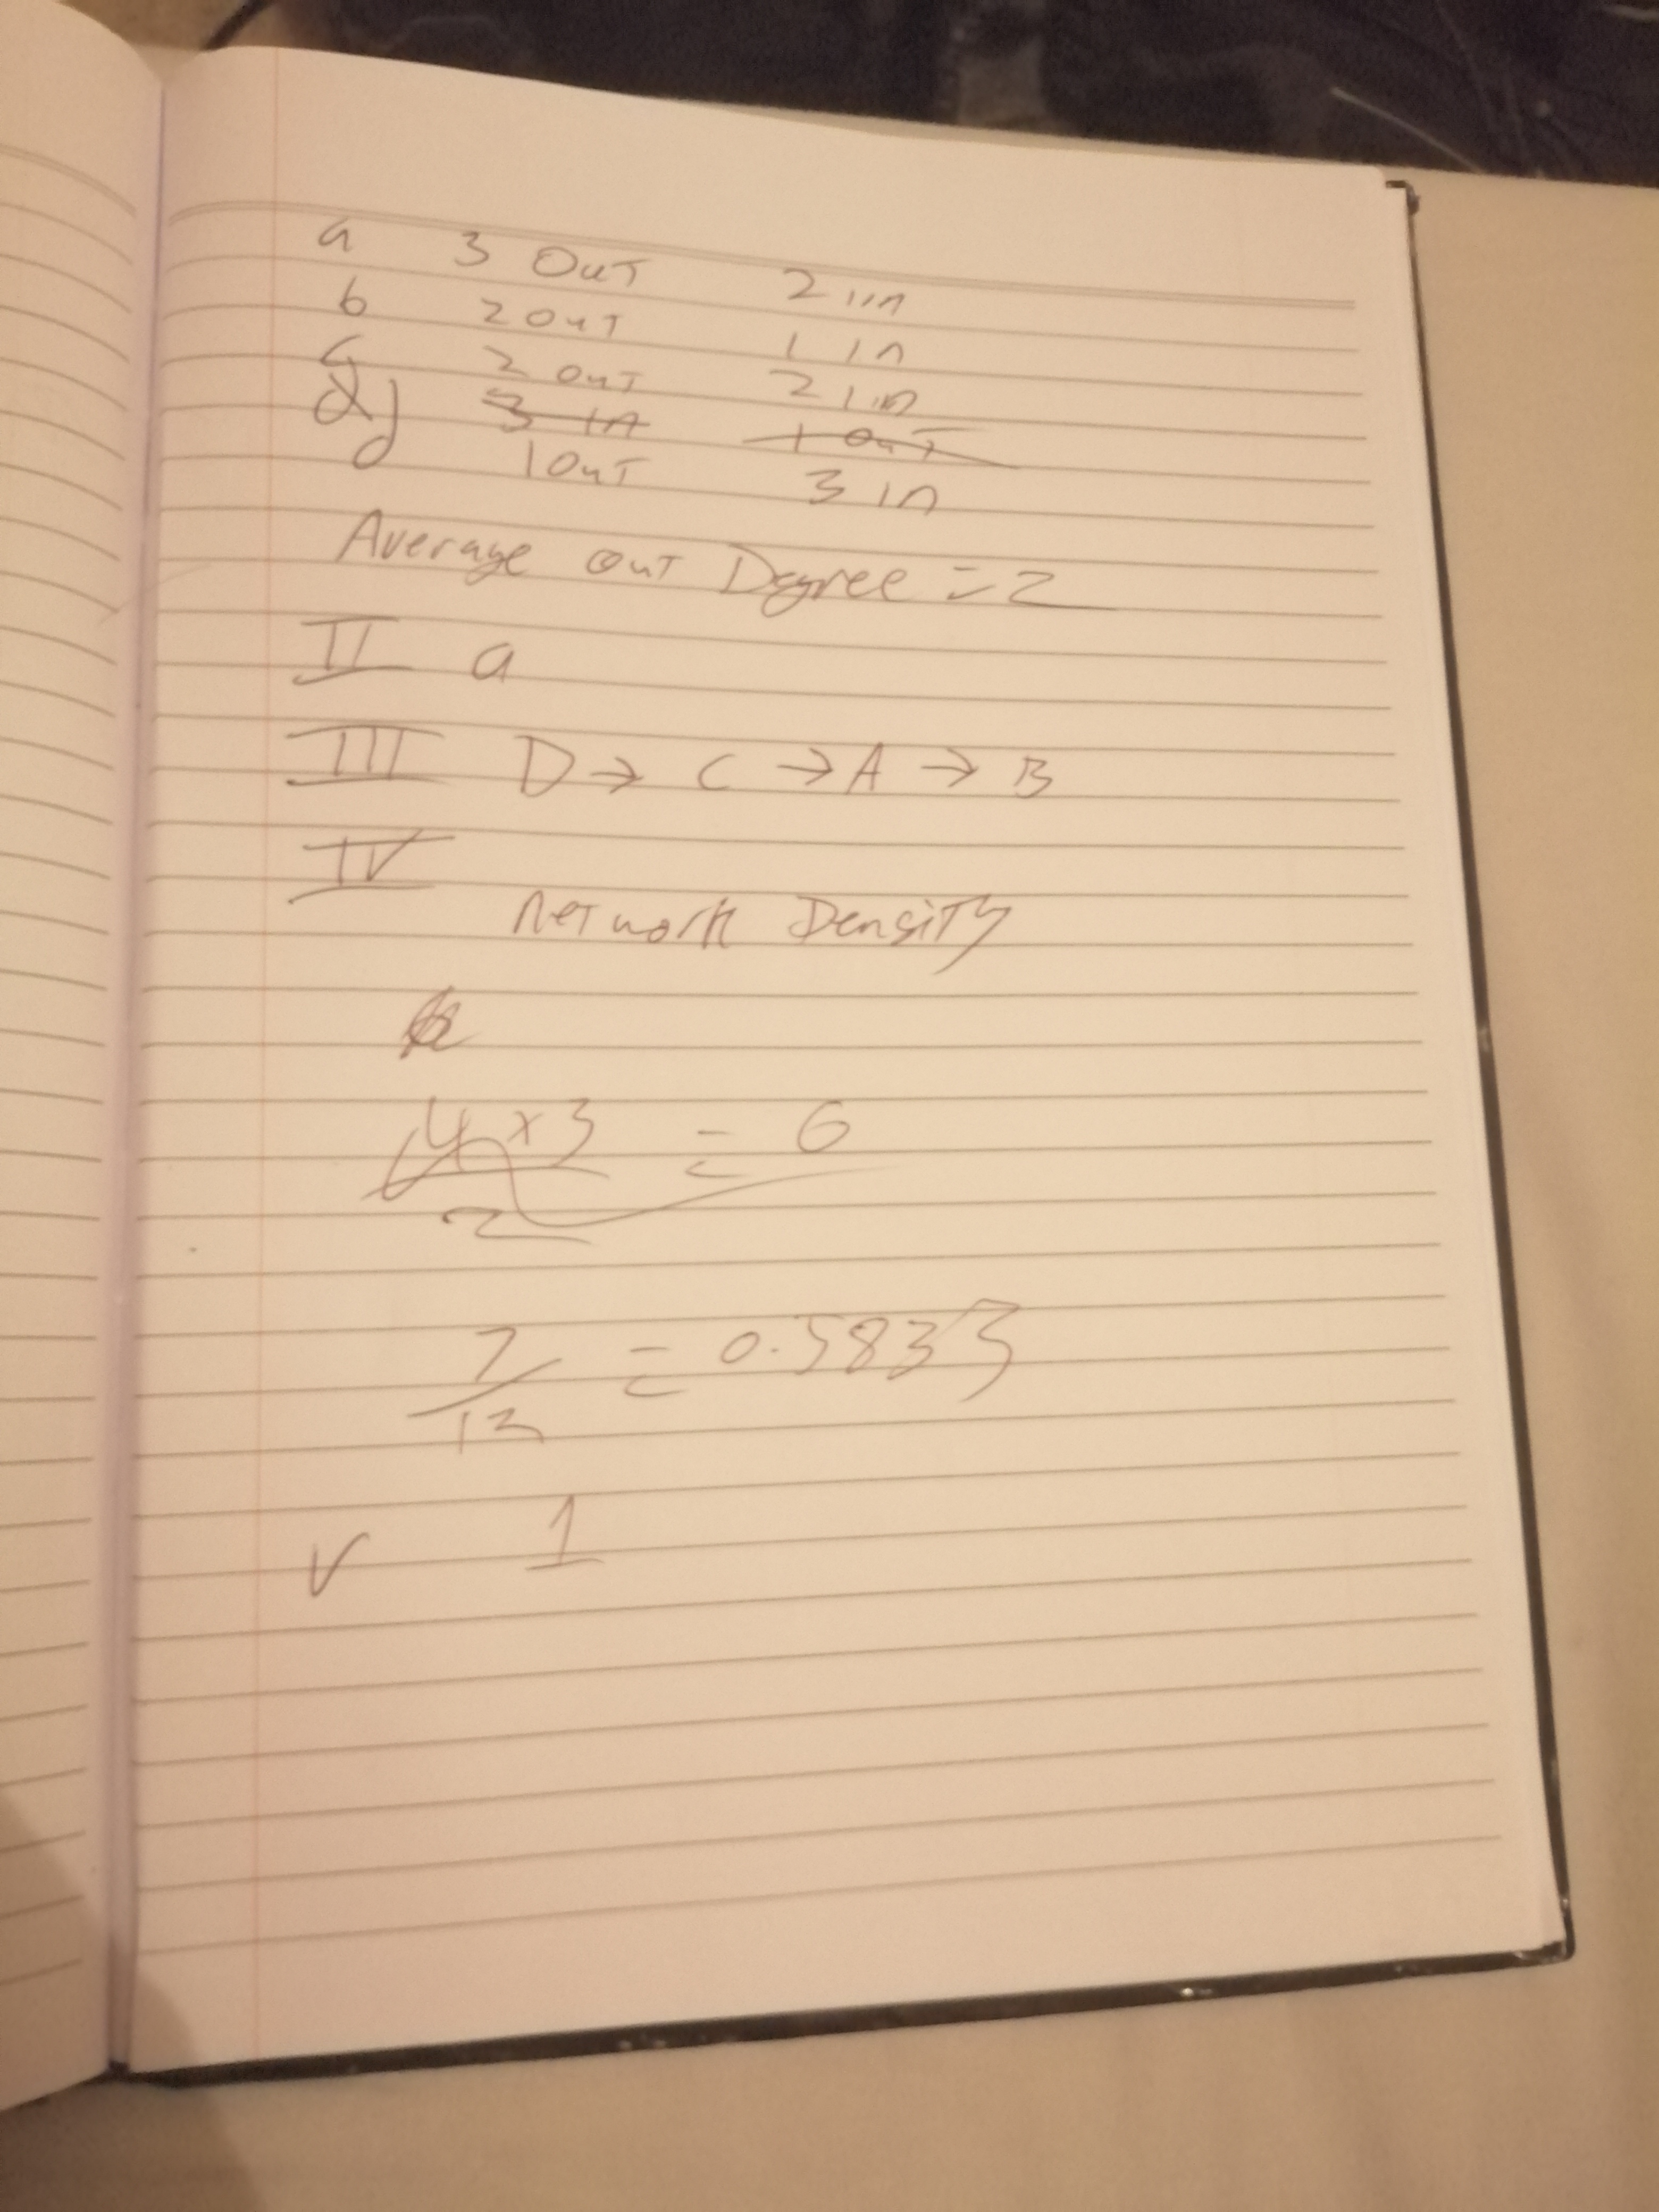 a 3 OuT 2 in
b 2 OuT 1 in
c 2 OuT 2 in
3 in 1 OuT
d 1 OuT 3 in
Average OuT Degree = 2
II a
III D → C → A → B
IV
NeTwork DensiTy
4 x 3 = 6
2
7 = 0.5833
12
V 1